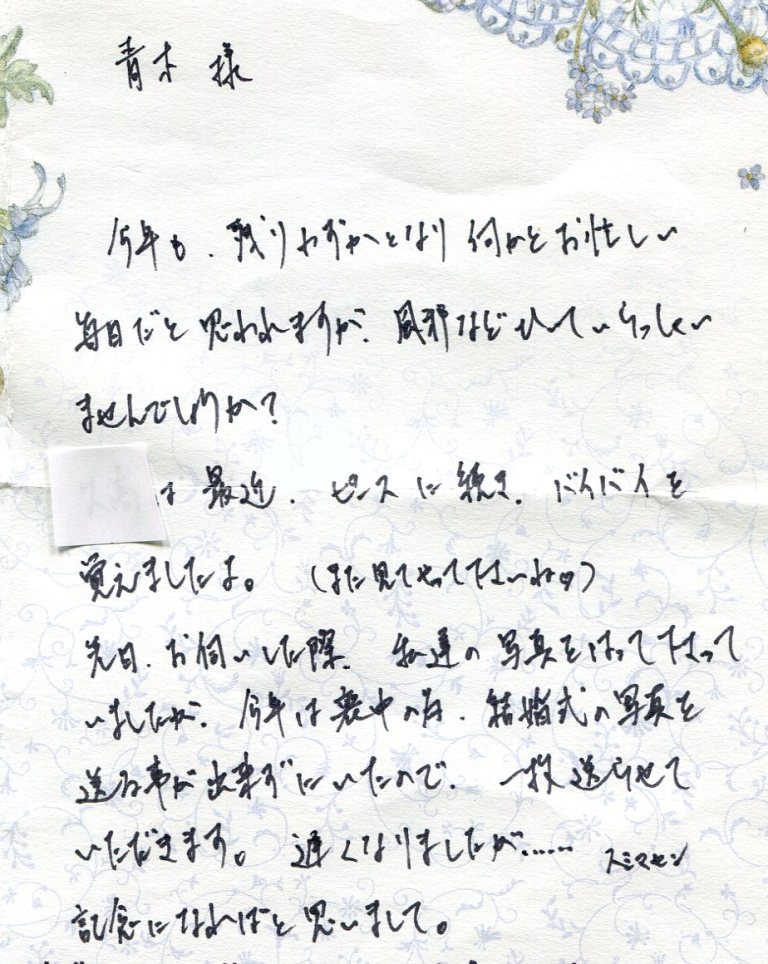 青木 様
今年も、残りわずかとなり 何かとお忙しい
毎日だと思われますが、風邪などひいていらっしゃい
ませんでしょうか?
は 最近、ピースに続き、バイバイを
覚えましたよ。 (また見てやって下さいね♡)
先日、お伺いした際、私達の写真をはって下さって
いましたが、今年は喪中の為、結婚式の写真を
送る事が出来ずにいたので、一枚送らせて
いただきます。 遅くなりましたが…… スミマセン
記念になればと思いまして。